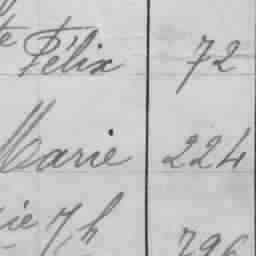 te Félix 72
Marie 224
ie 7, h 796